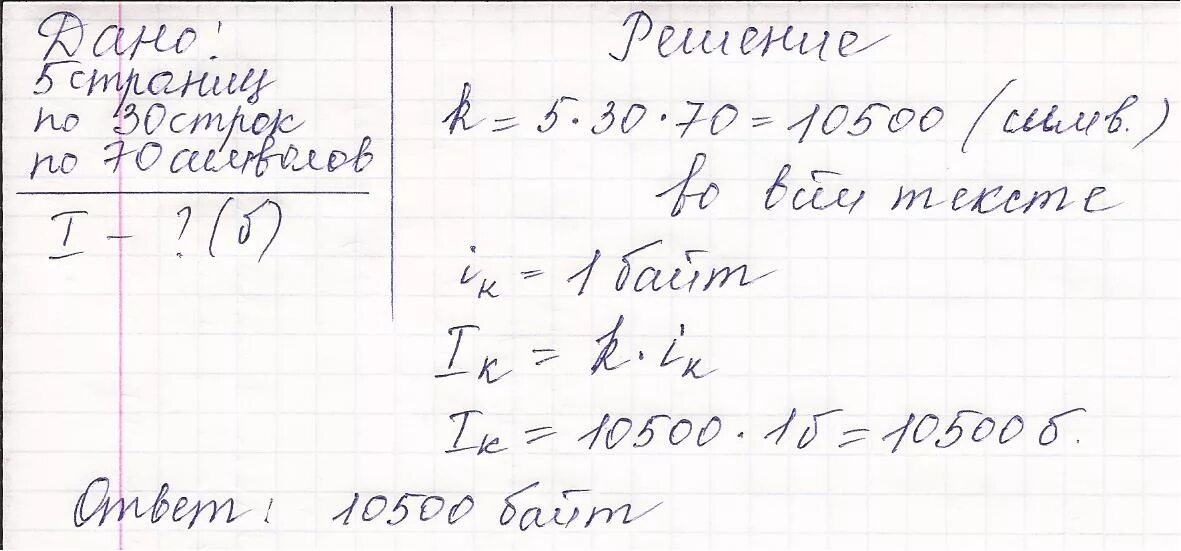 Дано:
5 страниц
по 30 строк
по 70 символов
I - ? (б)
Решение
k = 5·30·70 = 10500 (симв.)
во всём тексте
iк = 1 байт
Iк = k·iк
Iк = 10500·1б = 10500 б.
Ответ: 10500 байт